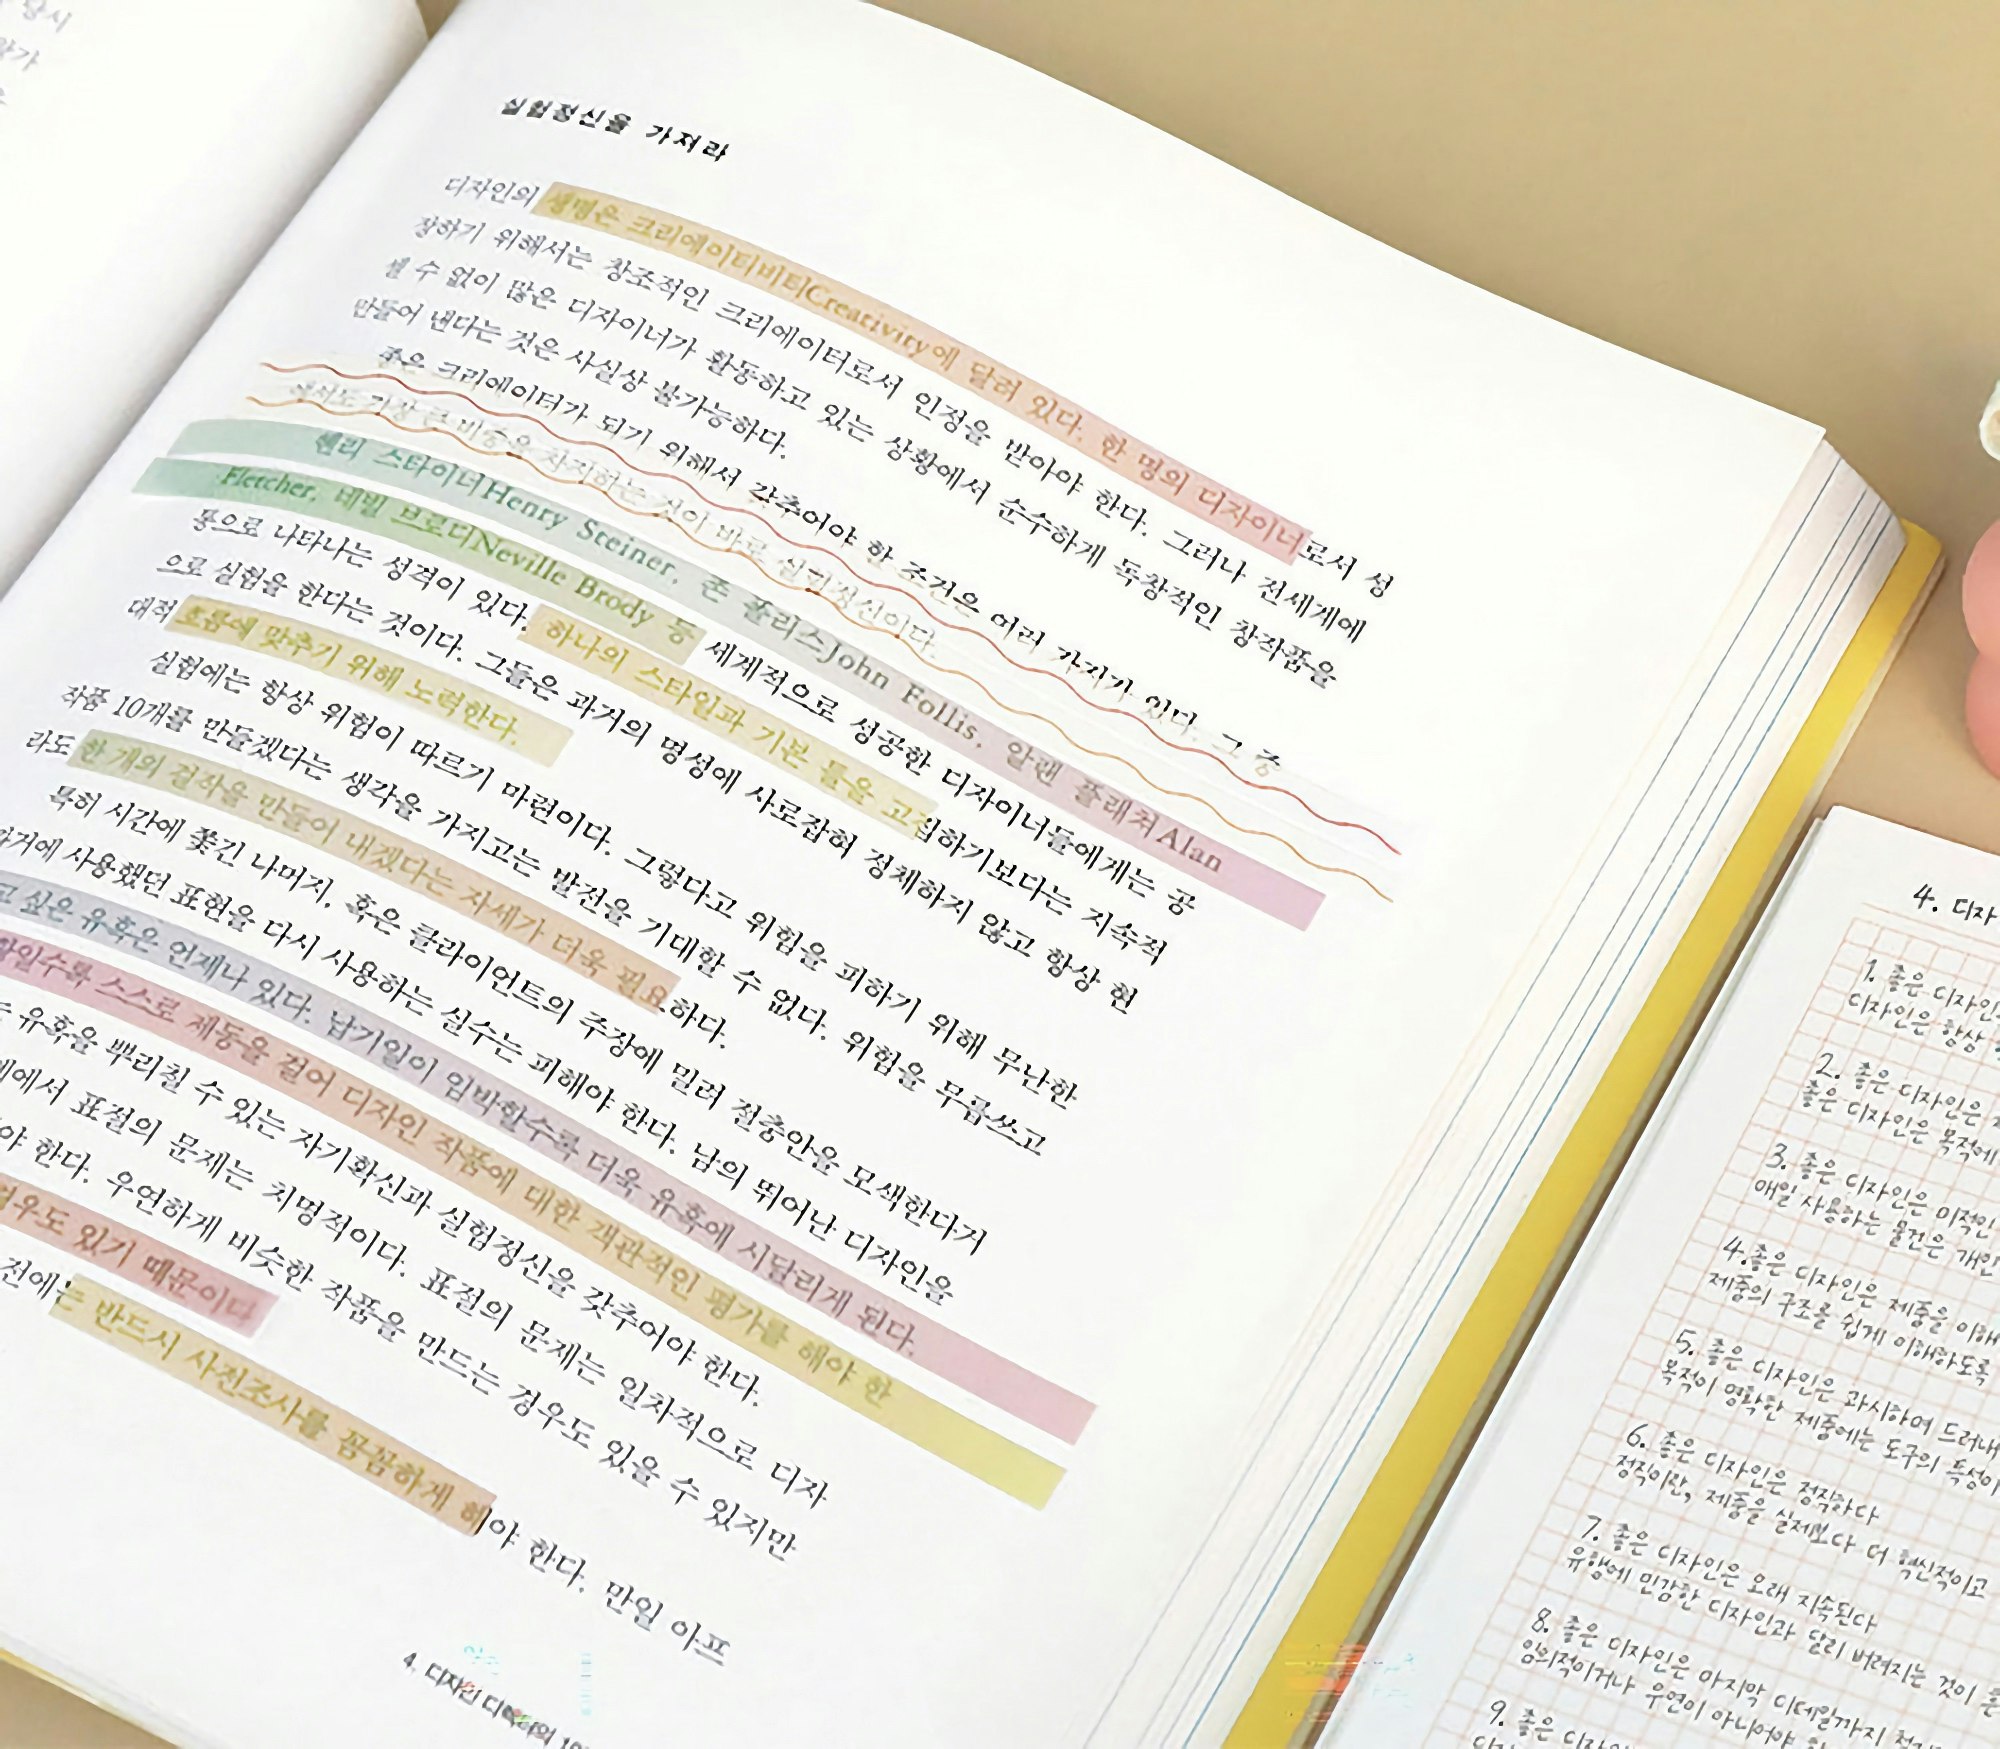 실험정신을 가져라
디자인의 생명은 크리에이티비티Creativity에 달려 있다. 한 명의 디자이너로서 성
장하기 위해서는 창조적인 크리에이터로서 인정을 받아야 한다. 그러나 전세계에
셀 수 없이 많은 디자이너가 활동하고 있는 상황에서 순수하게 독창적인 창작품을
만들어 낸다는 것은 사실상 불가능하다.
좋은 크리에이터가 되기 위해서 갖추어야 한 조건은 여러 가지가 있다. 그 중
에서도 가장 큰 비중을 차지하는 것이 바로 실험정신이다.
헨리 스타이너Henry Steiner, 존 폴리스John Follis, 알랜 플래쳐Alan
Fletcher, 네빌 브로디Neville Brody 등 세계적으로 성공한 디자이너들에게는 공
통으로 나타나는 성격이 있다. 하나의 스타일과 기본 틀을 고집하기보다는 지속적
으로 실험을 한다는 것이다. 그들은 과거의 명성에 사로잡혀 정체하지 않고 항상 현
대적 흐름에 맞추기 위해 노력한다.
실험에는 항상 위험이 따르기 마련이다. 그렇다고 위험을 피하기 위해 무난한
작품 10개를 만들겠다는 생각을 가지고는 발전을 기대할 수 없다. 위험을 무릅쓰고
라도 한 개의 걸작을 만들어 내겠다는 자세가 더욱 필요하다.
특히 시간에 쫓긴 나머지, 혹은 클라이언트의 주장에 밀려 절충안을 모색한다거
과거에 사용했던 표현을 다시 사용하는 실수는 피해야 한다. 남의 뛰어난 디자인을
고 싶은 유혹은 언제나 있다. 납기일이 임박할수록 더욱 유혹에 시달리게 된다.
할수록 스스로 제동을 걸어 디자인 작품에 대한 객관적인 평가를 해야 한
유혹을 뿌리칠 수 있는 자기확신과 실험정신을 갖추어야 한다.
에서 표절의 문제는 치명적이다. 표절의 문제는 일차적으로 디자
야 한다. 우연하게 비슷한 작품을 만드는 경우도 있을 수 있지만
경우도 있기 때문이다
전에는 반드시 사전조사를 꼼꼼하게 해야 한다. 만일 아프
4. 디자인
4. 디자
1. 좋은 디자인은
디자인은 항상
2. 좋은 디자인은
좋은 디자인은 목적에
3. 좋은 디자인은 미적인
매일 사용하는 물건은 개인
4. 좋은 디자인은 제품을 이해
제품의 구조를 쉽게 이해하도록
5. 좋은 디자인은 과시하며 드러내
목적이 명확한 제품에는 도구의 특성이
6. 좋은 디자인은 정직하다
정직이란, 제품을 실제보다 더 혁신적이고
7. 좋은 디자인은 오래 지속된다
유행에 민감한 디자인과 달리 버려지는 것이
8. 좋은 디자인은 마지막 디테일까지
임의적이거나 우연이 아니어야
9. 좋은